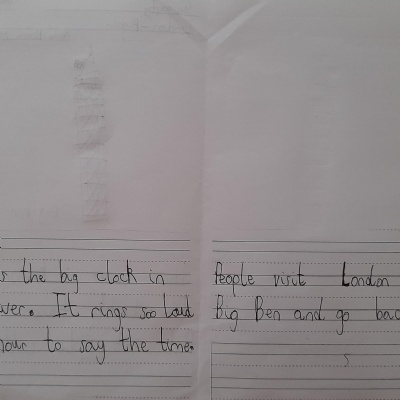 s the big clock in
wer. It rings soo loud
hour to say the time.
People visit London
Big Ben and go bac
5